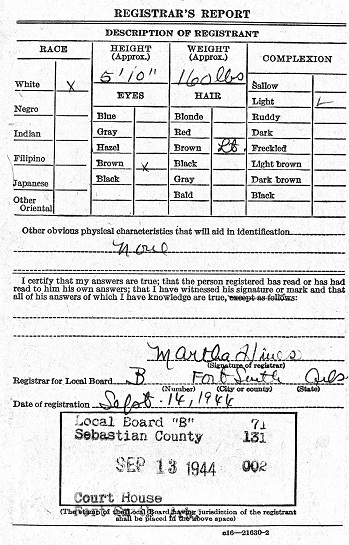 REGISTRAR'S REPORT
DESCRIPTION OF REGISTRANT
RACE
HEIGHT (Approx.)
WEIGHT (Approx.)
COMPLEXION
5' 10"
160 lbs
White X
Negro
Indian
Filipino
Japanese
Other Oriental
EYES
Blue
Gray
Hazel
Brown X
Black
HAIR
Blonde
Red
Brown Lt.
Black
Gray
Bald
Sallow
Light ✓
Ruddy
Dark
Freckled
Light brown
Dark brown
Black
Other obvious physical characteristics that will aid in identification
None
I certify that my answers are true; that the person registered has read or has had
read to him his own answers; that I have witnessed his signature or mark and that
all of his answers of which I have knowledge are true, except as follows:
Martha Hines
(Signature of registrar)
Registrar for Local Board B Fort Smith
(Number) (City or county) (State)
Date of registration Sept. 14, 1944
Local Board "B" 71
Sebastian County 131
SEP 13 1944 002
Court House
(The stamp of the Local Board having jurisdiction of the registrant
shall be placed in the above space)
c16—21630-2